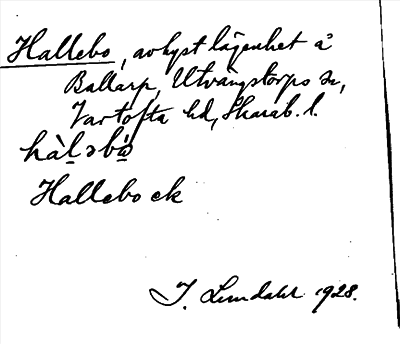 Hallebo, avhyst lägenhet å
Ballarp, Utvängstorps sn,
Vartofta hd, Skarab. l.
hàləbò
Hallebo ek
J. Lundahl 1928.